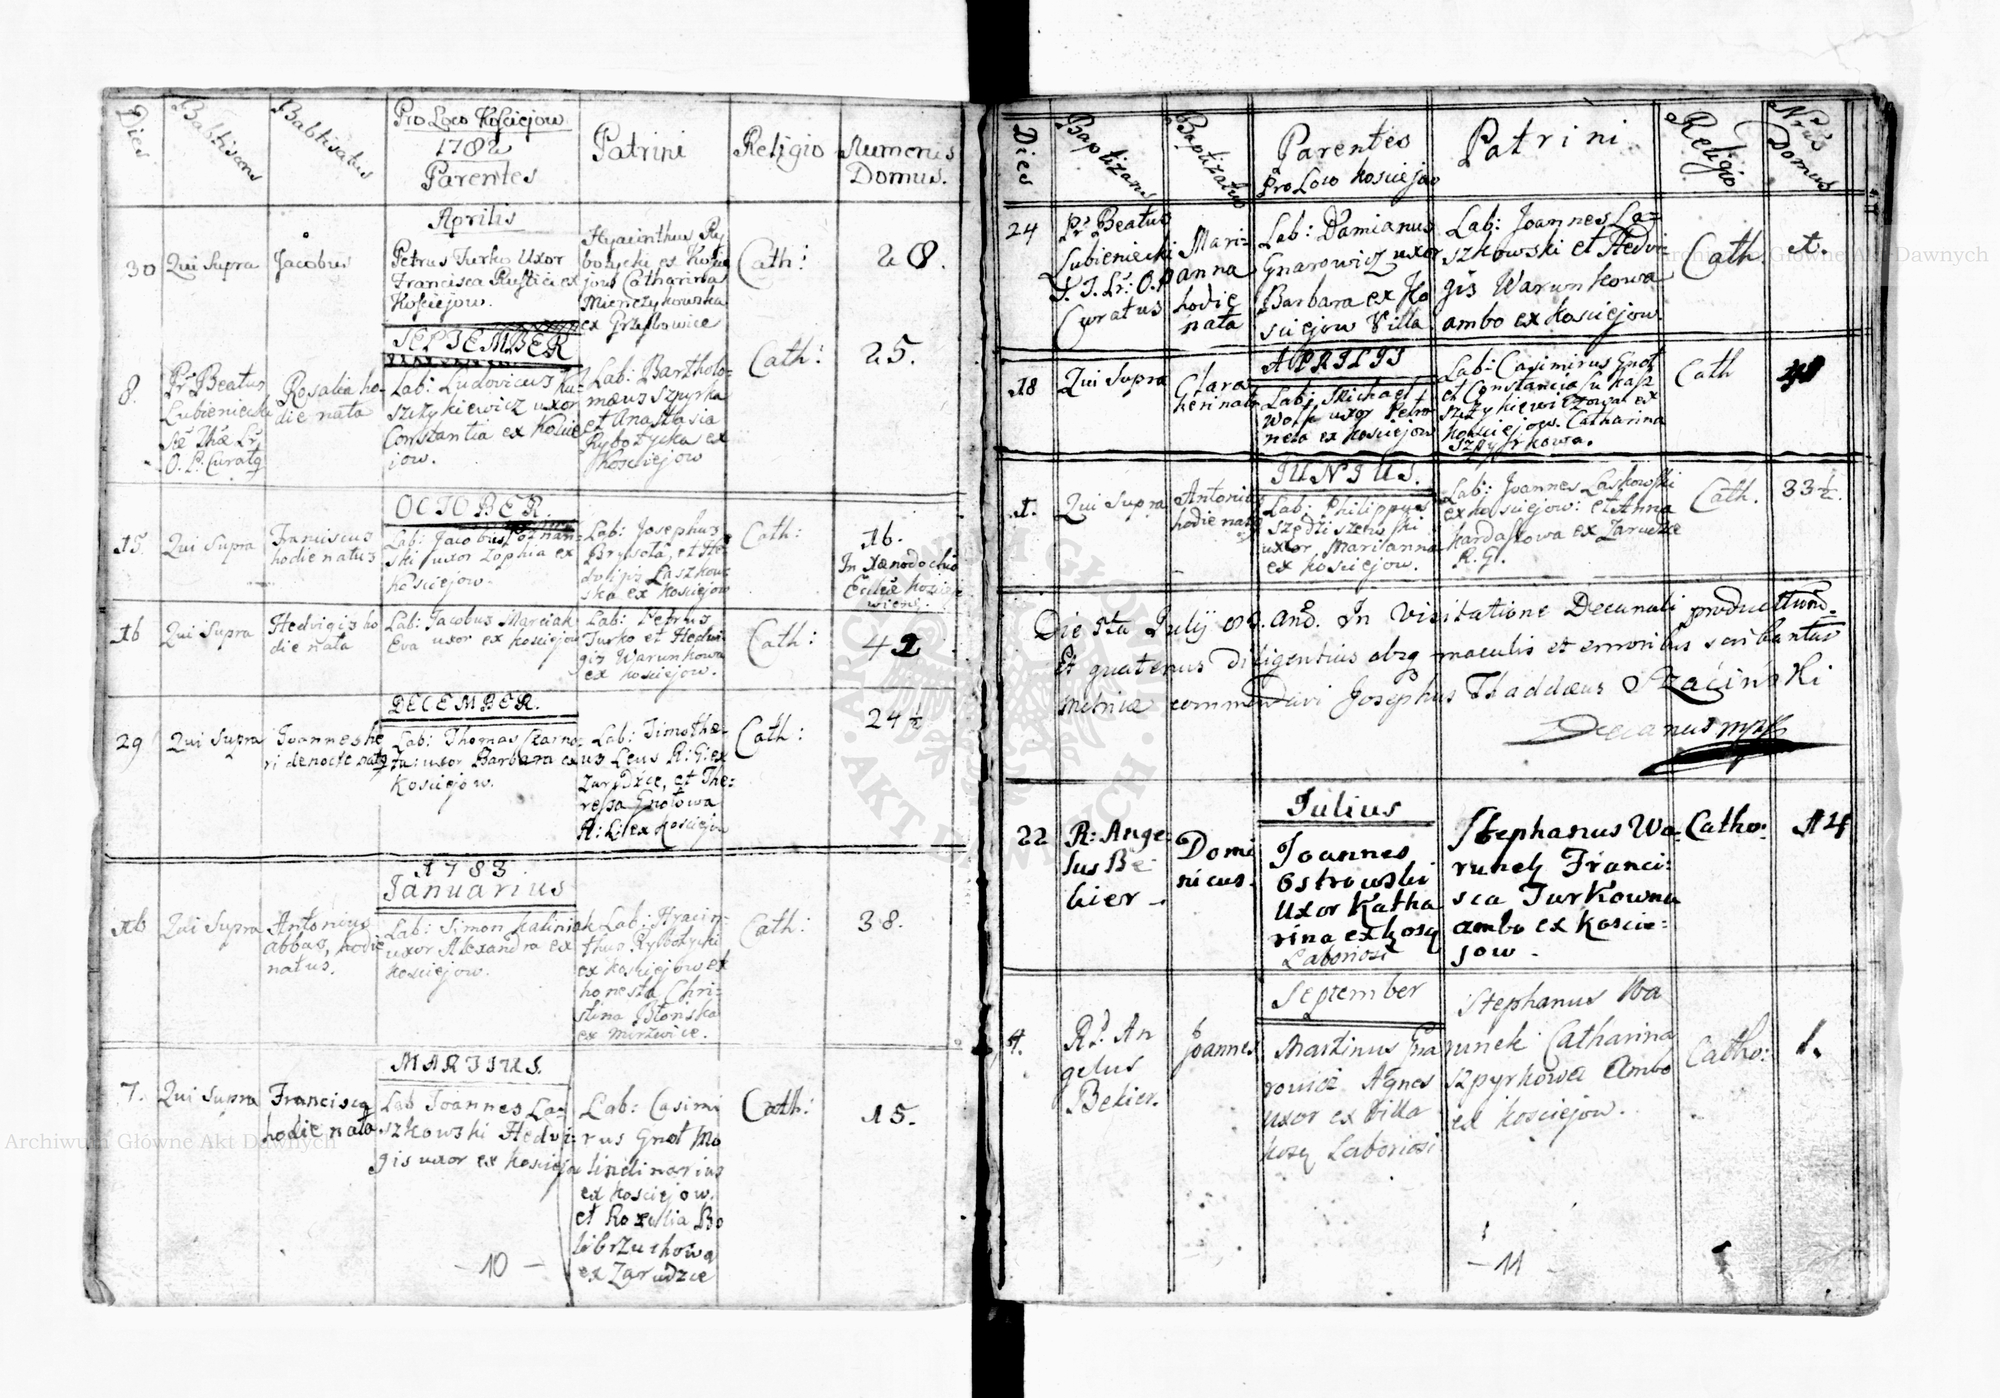 Dies
Babtisans
Babtisatus
Pro Loco Kosciejow
1782
Parentes
Patrini
Religio
Numerus
Domus.
Aprilis
30
Qui Supra
Jacobus
Petrus Turko Uxor
Francisca Rustici ex
Kosciejow.
Hyacinthus Ry
botycki ex Koście
jow Catharina
Mienczykowska
ex Grzębowice
Cath:
28.
SEPTEMBER
8.
Pr. Beatus
Lubieniecki
O. P. Curatq
Rosalia ho-
die nata
Lab: Ludovicus Ku-
szczykiewicz uxor
Constantia ex Koście
jow.
Lab: Bartholo-
mæus Szpyrka
et Anastasia
Rybotycka ex
Kosciejow
Cath:
25.
OCTOBER.
15.
Qui Supra
Franciscus
hodie natus
Lab: Jacobus Poznan-
ski uxor Zophia ex
Kosciejow.
Lab: Josephus
Brysota, et He
dvigis Laszkow
ska ex Kosciejow
Cath:
16.
In Xenodochio
Eccliæ Koscie
wien.
16
Qui Supra
Hedvigis ho
die nata
Lab: Jacobus Marciak
Eva uxor ex Kosciejow
Lab: Petrus
Turko et Hedvi
gis Warunkowa
ex Kosciejow.
Cath:
42
DECEMBER.
29
Qui Supra
Joannes he
ri de nocte natq
Lab: Thomas Czarno-
tas uxor Barbara ex
Kosciejow.
Lab: Timothæ-
us Leus R: G: ex
Zarudzce, et The-
ressa Gnotowa
R: L: ex Kosciejow
Cath:
24 ½
1783.
Januarius
16
Qui Supra
Antonius
abbas, hodie
natus.
Lab: Simon Kaliniak
uxor Alexandra ex
Kosciejow.
Lab: Hyacin-
thus Rybotycki
ex Kosciejow et
honesta Chri-
stina Błonska
ex Mirzwice.
Cath:
38.
MARTIUS.
7.
Qui Supra
Francisca
hodie nata
Lab Joannes La-
szkowski Hedvi-
gis uxor ex Kosciejow
Lab: Casimi
rus Gnot Mo
lindinarius
ex Kosciejow.
et Rozalia Bo
librzuchowa
ex Zarudzce
Cath:
15.
- 10 -
Dies
Baptizans
Baptizatus
Parentes
Pro Loco Kosciejow
Patrini
Religio
Nrus
Domus
24
Pr. Beatus
Lubieniecki
S. T. Lr: O. P
Curatus
Mari-
anna
hodie
nata
Lab: Damianus
Gnarowicz uxor
Barbara ex Ko
sciejow Villa
Lab: Joannes La-
szkowski et Hedvi
gis Warunkowa
ambo ex Kosciejow
Cath
1.
APRILIS
18
Qui Supra
Clara
heri nata
Lab: Michael
Wolf uxor Petro
nela ex Kosciejow
Lab: Casimirus Gnot
et Constancia Lukasz
szczykiewiczowa ex
Kosciejow. Catharina
Szpyrkowa.
Cath
JUNIUS.
1.
Qui Supra
Antonius
hodie natq
Lab: Philippus
Szędziszewski
uxor Marianna
ex Kosciejow.
Lab: Joannes Laskowski
ex Kosciejow: et Anna
Kardaszowa ex Zarudzce
R. G.
Cath.
33 ½.
Die 5ta Julij 83. And. In Visitatione Decanali productum.
Et quatenus diligentius absq maculis et erroribus scribantur
metricæ commendavi Josephus Thaddæus Szaciński
Decanus mpp
Julius
22
R: Ange-
lus Be-
kier -
Domi
nicus.
Joannes
Ostrowski
Uxor Katha
rina ex Kosij
Laboriosi
Stephanus Wa-
runek Franci-
sca Turkowna
ambo ex Koscie-
jow -
Catho:
14
September
4.
Rd. An
gelus
Bekier.
Joannes
Martinus Gna
rowicz Agnes
uxor ex Villa
Kosij Laboriosi
Stephanus Wa
runek Catharina
Szpyrkowa Ambo
ex Kosciejow.
Catho:
1.
- 11
Archiwum Główne Akt Dawnych
Archiwum Główne Akt Dawnych
ARCHIWUM GŁÓWNE AKT DAWNYCH